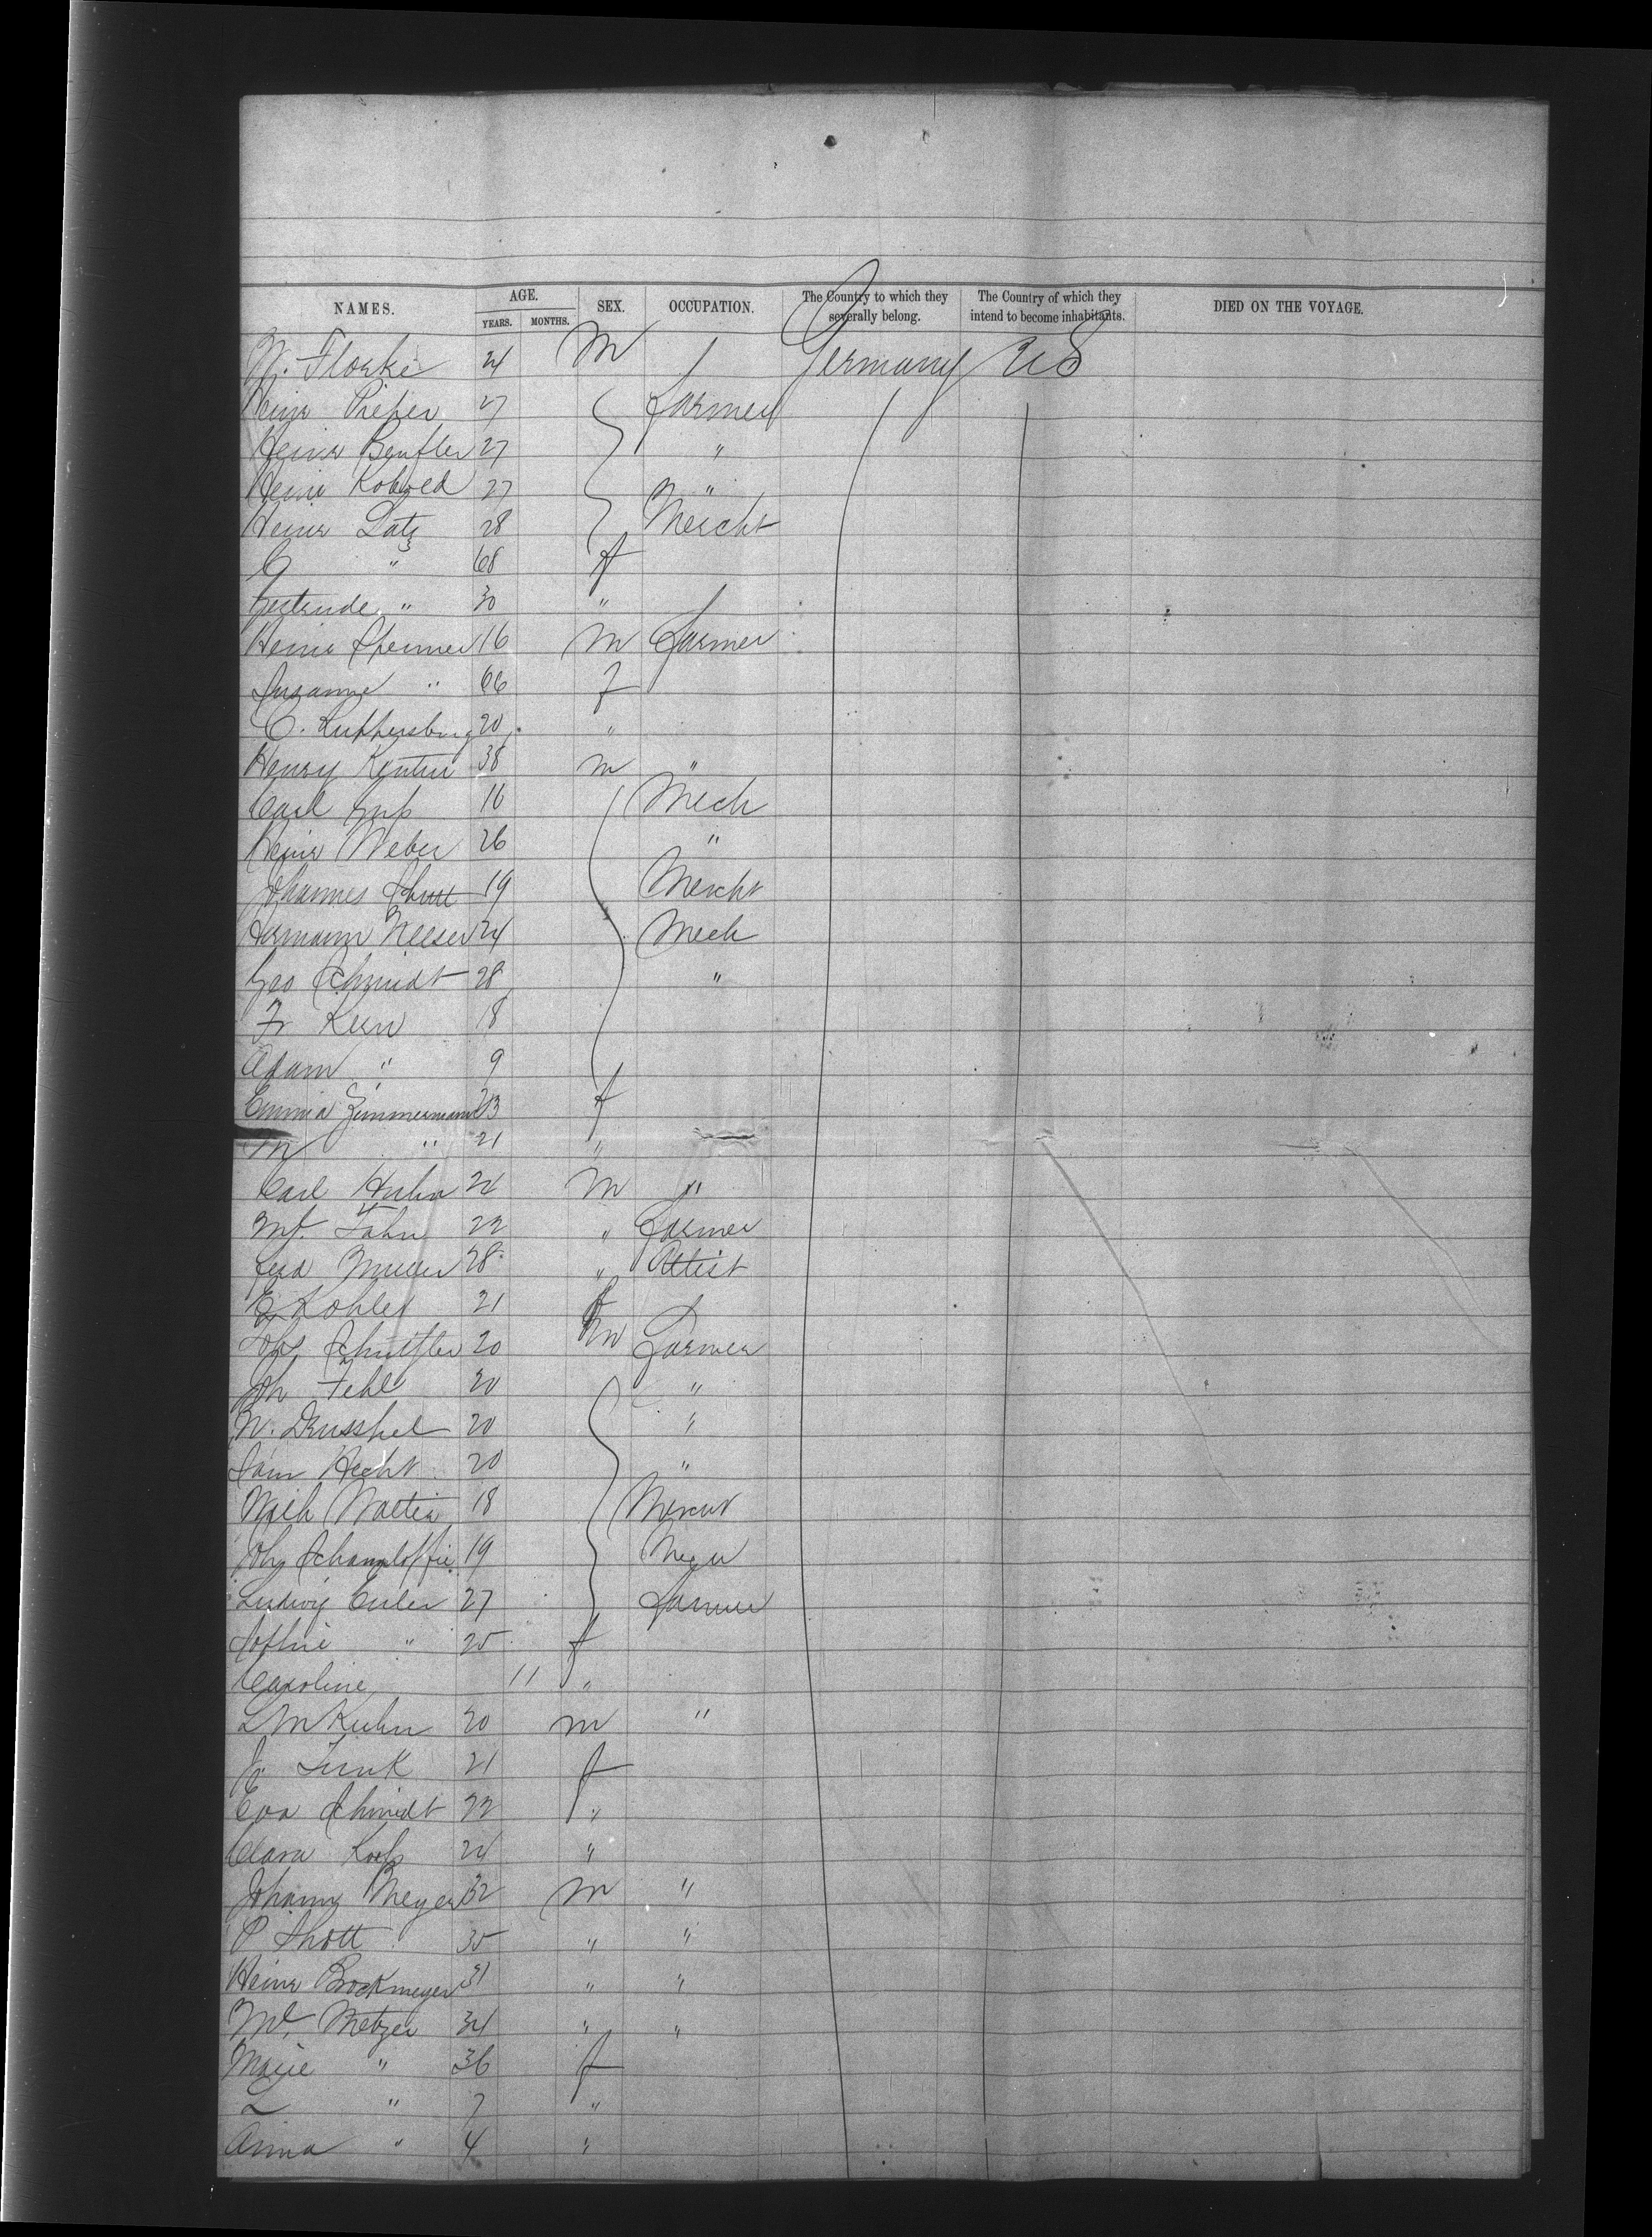 NAMES. AGE. YEARS. MONTHS. SEX. OCCUPATION. The Country to which they severally belong. The Country of which they intend to become inhabitants. DIED ON THE VOYAGE.
W. Florke 24 M Germany US
Heinr Pieper 27 Farmer
Heinr 27 "
Heinr Kobold 27 "
Heinr Latz 28 Mercht
C " 68 f
Gertrude " 30 "
Heinr 16 M Farmer
Susanne " 66 f
C. Ruppersburg 20 "
Henry 38 m "
Carl 16 Mech
Heinr Weber 26 "
Johannes Schutt 19 Mercht
Hermann Neeser 24 Mech
Geo Schmidt 28 "
Fr Kern 18
Adam " 9
Emma Zimmermann 23 f
M " 21 "
Carl Huhn 24 M "
Mt. Fahn 22 " Farmer
Ferd Muller 28 " Artist
E Kohler 21 f
Johs 20 m Farmer
Joh Fehl 20 "
W. Drusshel 20 "
Sam Hecht 20 "
Mich 18
Johs 19
Ludwig Euler 27 Farmer
Sophie " 25 f
Caroline 11 "
L M Kuhn 20 m "
Funk 21 f
Eva Schmidt 22 "
Clara 24 "
Johanns Meyer 32 M "
P Shott 35 " "
Heinr Brockmeyer 31 " "
Metzer 34 " "
Marie " 36 f
L " 7 "
Anna " 4 "